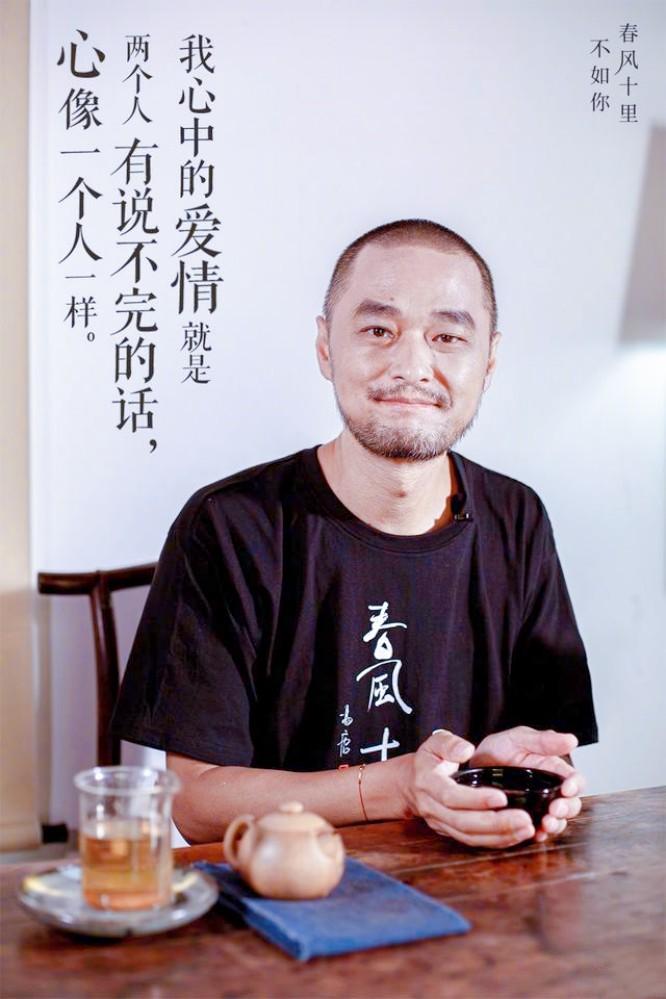 春风十里
不如你
我心中的爱情就是
两个人有说不完的话，
心像一个人一样。
春風十